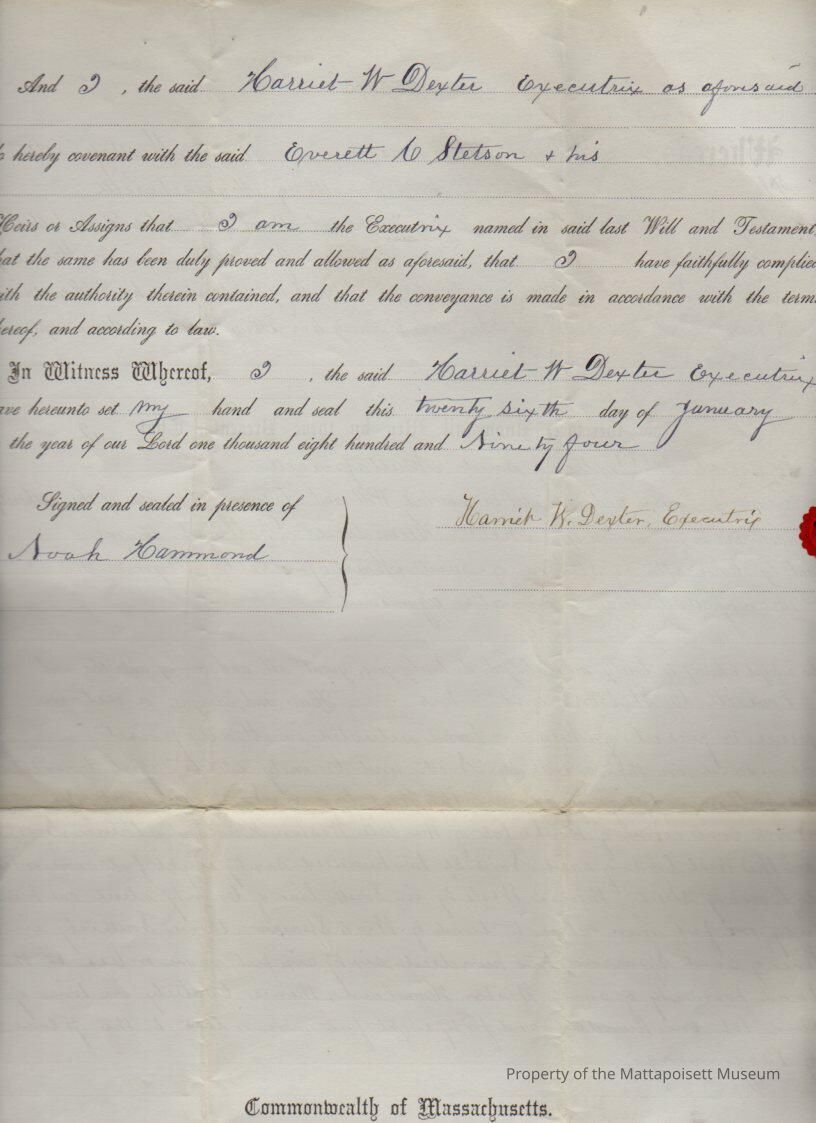 And I , the said Harriet W Dexter Executrix as aforesaid
hereby covenant with the said Everett C Stetson + his
Heirs or Assigns that I am the Executrix named in said last Will and Testament,
hat the same has been duly proved and allowed as aforesaid, that I have faithfully complied
ith the authority therein contained, and that the conveyance is made in accordance with the term
ereof, and according to law.
In Witness Whereof, I , the said Harriet W Dexter Executrix
ave hereunto set my hand and seal this twenty sixth day of January
the year of our Lord one thousand eight hundred and Ninety four
Signed and sealed in presence of
Harriet W. Dexter, Executrix
Noah Hammond
Property of the Mattapoisett Museum
Commonwealth of Massachusetts.